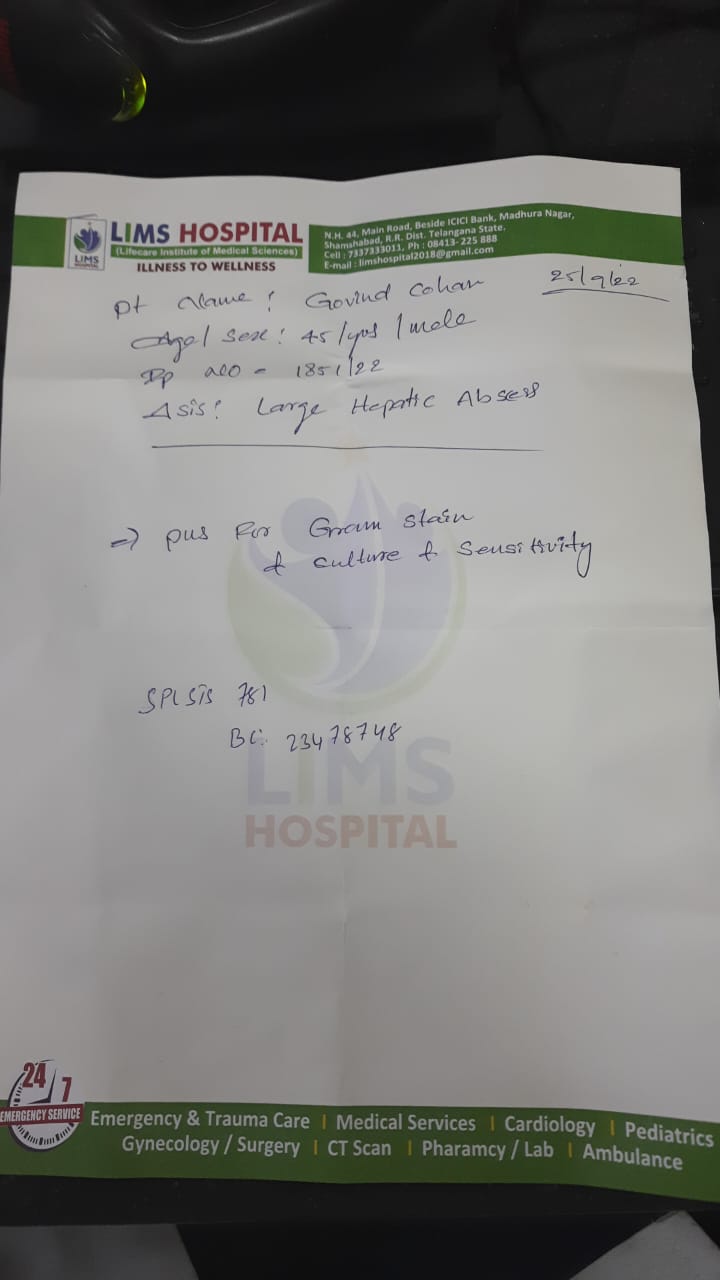 LIMS HOSPITAL
(Lifecare Institute of Medical Sciences)
ILLNESS TO WELLNESS
LIMS
HOSPITAL
N.H. 44, Main Road, Beside ICICI Bank, Madhura Nagar,
Shamshabad, R.R. Dist. Telangana State.
Cell : 7337333011, Ph : 08413- 225 888
E-mail : limshospital2018@gmail.com
25/9/22
Pt Name : Govind Cohan
Age/ Sex : 45/yrs / male
Ip no = 1851/22
Large Hepatic Absess
=> pus For Gram Stain
& culture & Sensitivity
781
23478748
LIMS
HOSPITAL
24/7
EMERGENCY SERVICE
Emergency & Trauma Care I Medical Services I Cardiology I Pediatrics
Gynecology / Surgery I CT Scan I Pharamcy / Lab I Ambulance